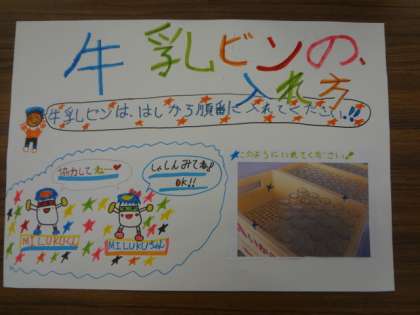 牛乳ビンの、
入れ方
牛乳ビンは、はしから順番に入れてください!!
協力してね
しゃしんみてね♪
OK!!
このようにいれてください♪
MILUKUくん
MILUKUちゃん